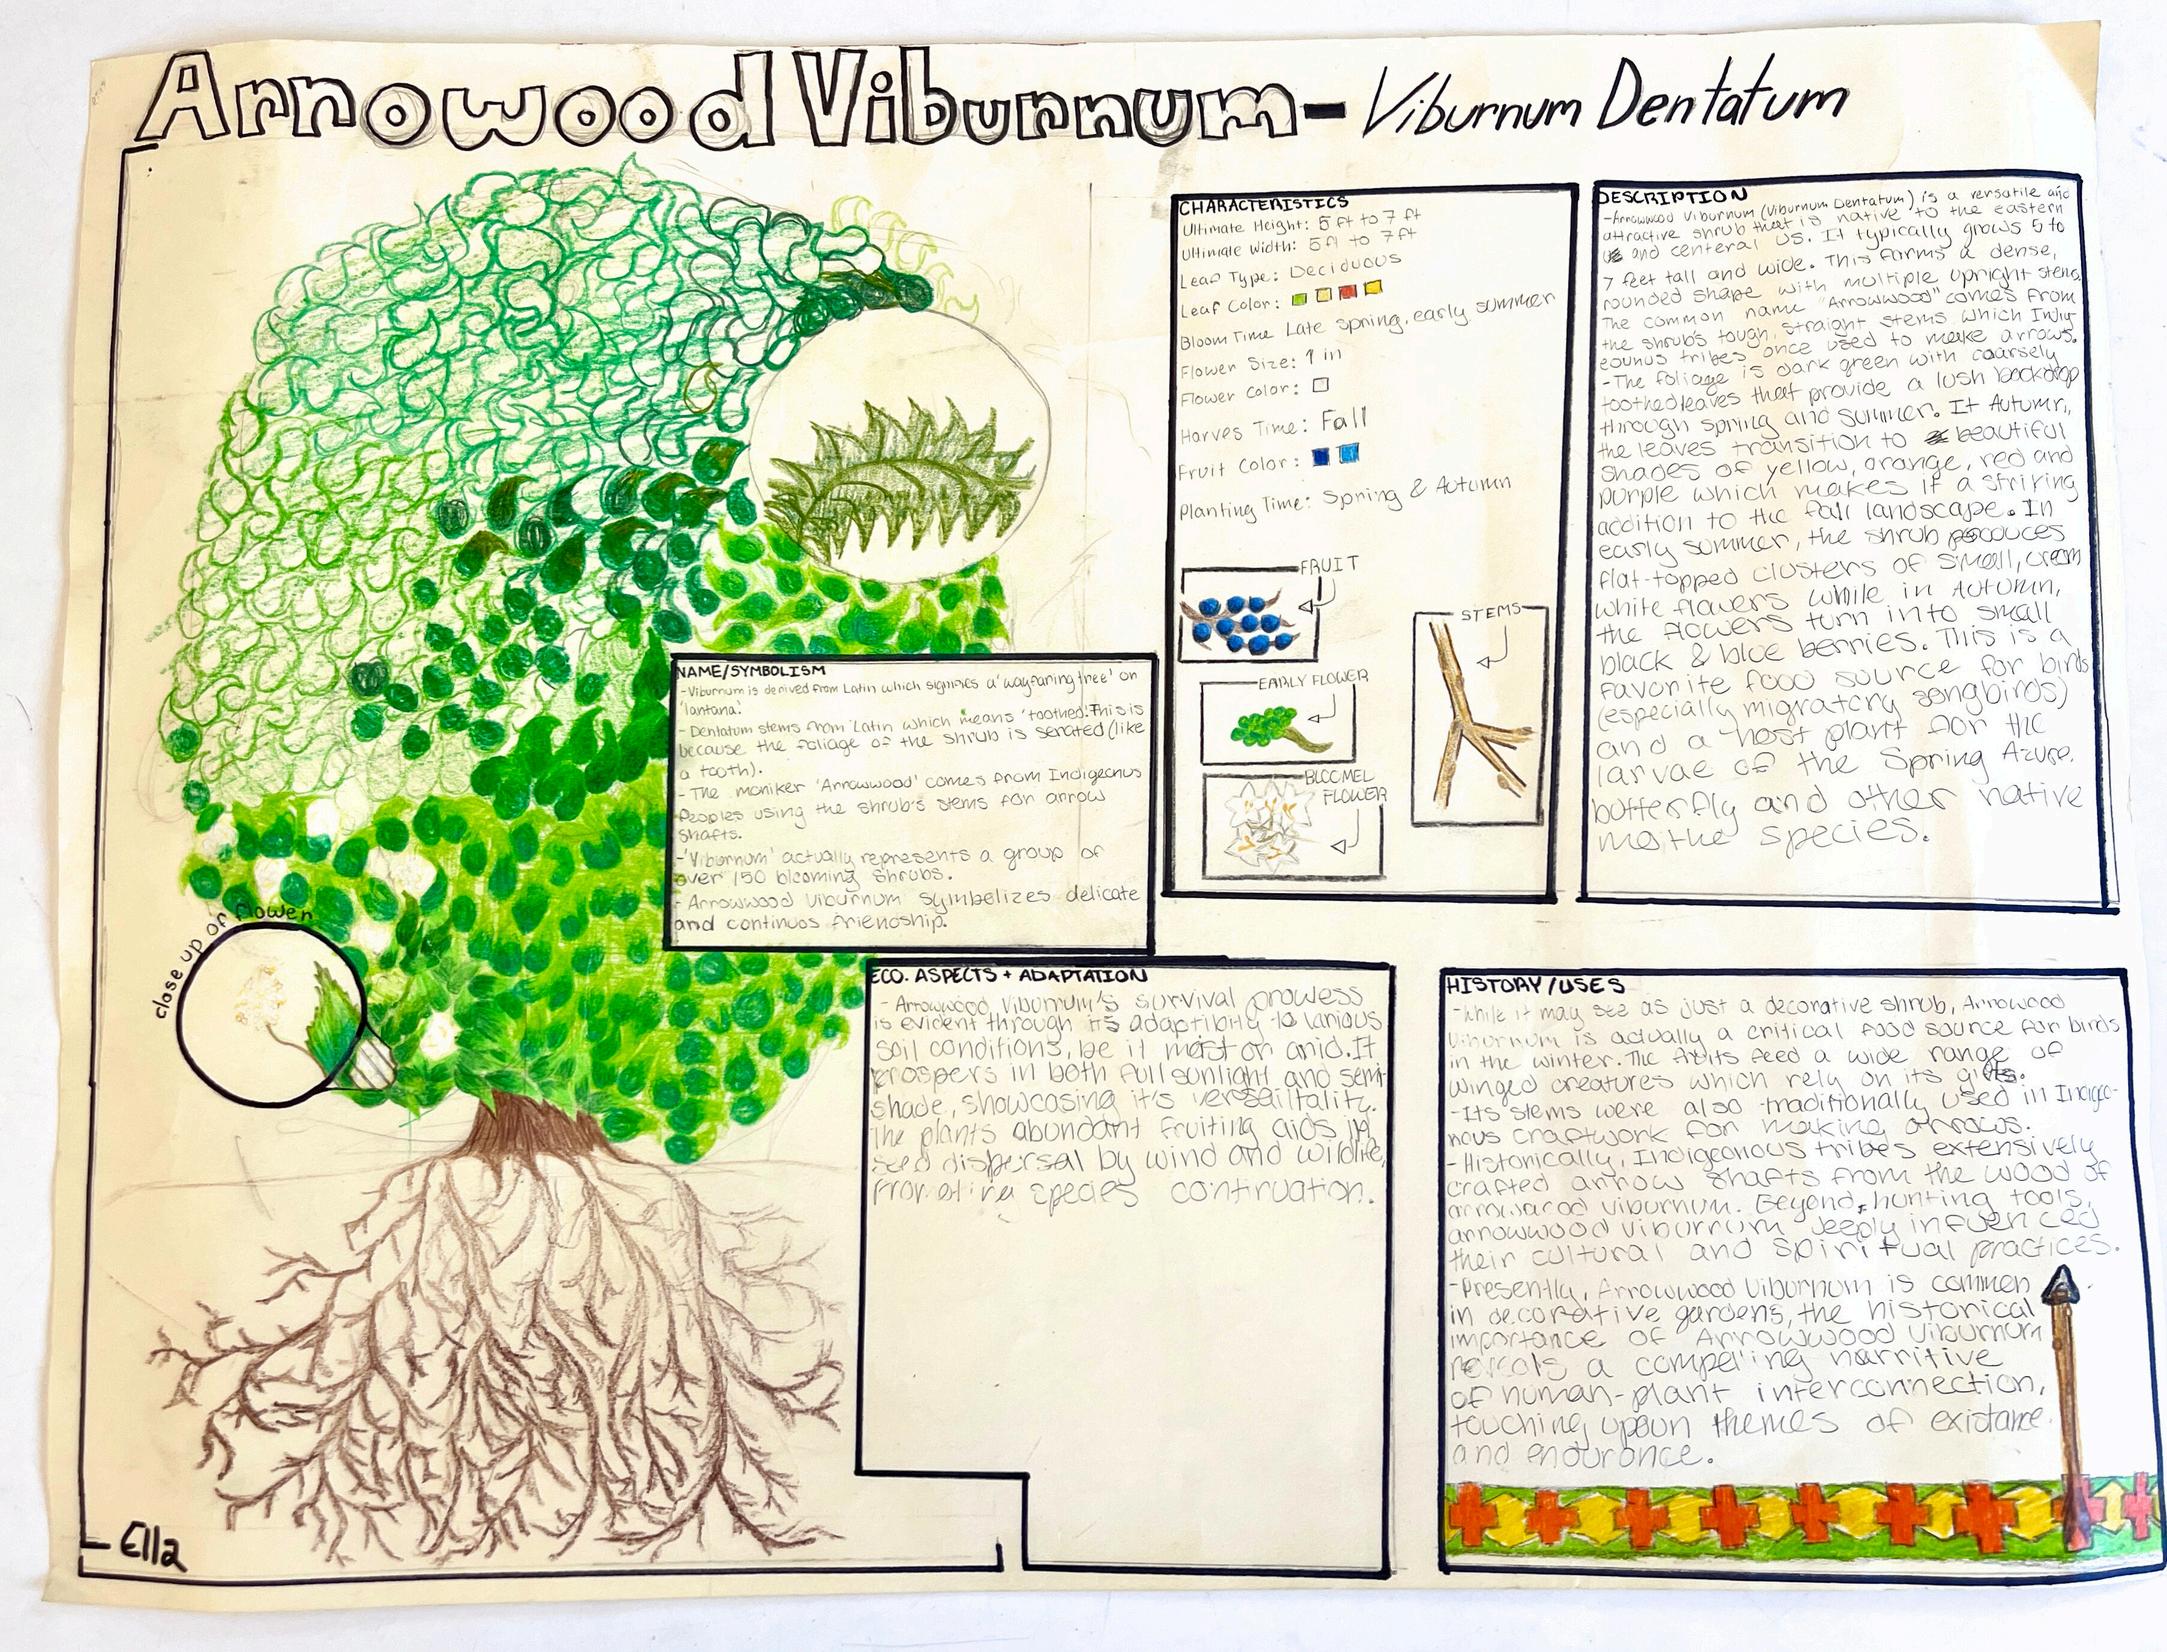 Arrowood Viburnum - Viburnum Dentatum
CHARACTERISTICS
Ultimate Height: 5 ft to 7 ft
Ultimate Width: 5 ft to 7 ft
Leaf Type: Deciduous
Leaf Color:
Bloom Time Late spring, early summer
Flower Size: 1 in
Flower Color:
Harves Time: Fall
Fruit Color:
Planting Time: Spring & Autumn
FRUIT
STEMS
EARLY FLOWER
FLOWER
DESCRIPTION
-Arrowwood Viburnum (Viburnum Dentatum) is a versatile and
attractive shrub that is native to the eastern
and centeral US. It typically grows 5 to
7 feet tall and wide. This forms a dense,
rounded shape with multiple upright stems.
The common name "Arrowwood" comes from
the shrub's tough, straight stems which Indig-
eounus tribes once used to make arrows.
-The foliage is dark green with coarsely
toothed leaves that provide a lush backdrop
through spring and summer. It Autumn,
the leaves transition to beautiful
shades of yellow, orange, red and
purple which makes it a striking
addition to the fall landscape. In
early summer, the shrub produces
flat-topped clusters of small, cream
white flowers while in Autumn,
the flowers turn into small
black & blue berries. This is a
favorite food source for birds
(especially migratory songbirds)
and a host plant for the
larvae of the Spring Azure
butterfly and other native
mothe species.
NAME/SYMBOLISM
-Viburnum is derived from Latin which signifies a 'wayfaring tree' or
'lantana'.
- Dentatum stems from Latin which means 'toothed'. This is
because the foliage of the shrub is serrated (like
a tooth).
- The moniker 'Arrowwood' comes from Indigenous
Peoples using the shrub's stems for arrow
shafts.
-'Viburnum' actually represents a group of
over 150 blooming shrubs.
- Arrowwood Viburnum symbolizes delicate
and continuos friendship.
close up of flower
ECO. ASPECTS + ADAPTATION
- Arrowwood Viburnum's survival prowess
is evident through its adaptibility to various
soil conditions, be it moist or arid. It
prospers in both full sunlight and semi-
shade, showcasing it's
The plants abundant fruiting aids in
seed dispersal by wind and wildlife,
promoting species continuation.
HISTORY/USES
-While it may see as just a decorative shrub, Arrowood
Viburnum is actually a critical food source for birds
in the winter. The fruits feed a wide range of
winged creatures which rely on its gifts.
-Its stems were also traditionally used in Indige-
nous craftwork for making arrows.
-Historically, Indigeonous tribes extensively
crafted arrow shafts from the wood of
viburnum. Beyond hunting tools,
arrowwood viburnum deeply influenced
their cultural and spiritual practices.
-Presently, Arrowwood Viburnum is common
in decorative gardens, the historical
importance of Arrowwood Viburnum
reveals a compelling narritive
of human-plant interconnection,
touching upoun themes of existance
and endurance.
Ella